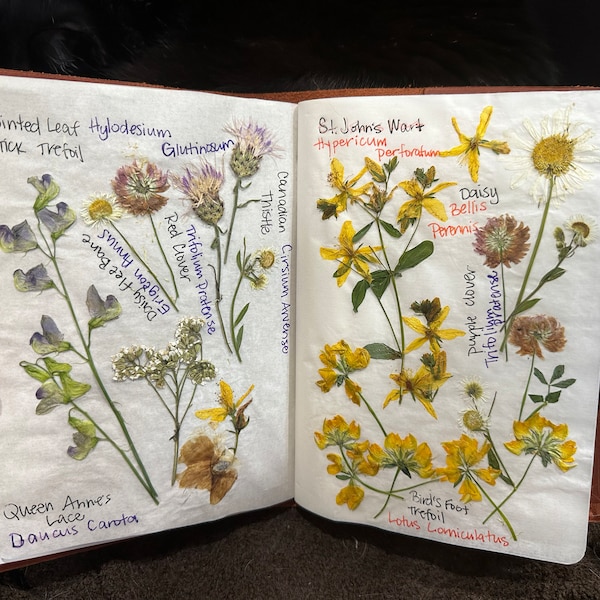 ointed Leaf Hylodesium
Tick Trefoil Glutinosum
Canadian Thistle
Cirsium Arvense
Red Clover
Trifolium Pratense
Daisy Flea Bane
Erigeon Annus
Queen Anne's
Lace
Daucus Carota
St. John's Wart
Hypericum
perforatum
Daisy
Bellis
Perennis
purple clover
Trifolium
Bird's Foot
Trefoil
Lotus Corniculatus